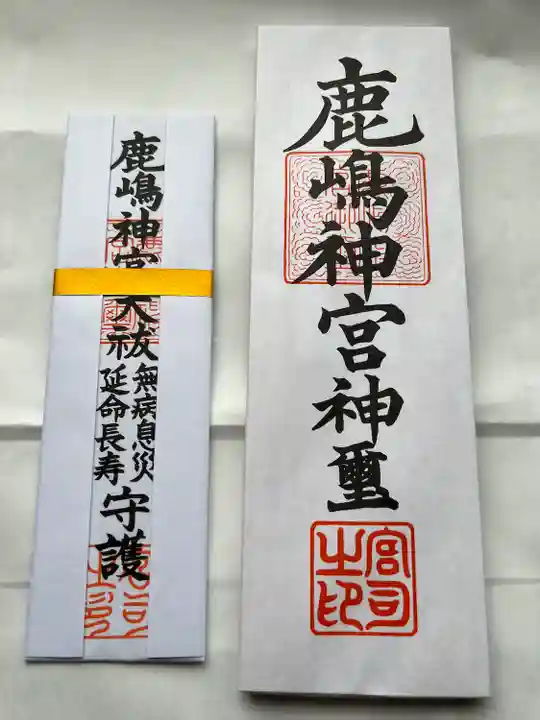 鹿嶋神宮神璽
宮司
之印
鹿嶋神宮大祓
無病息災
延命長寿
守護